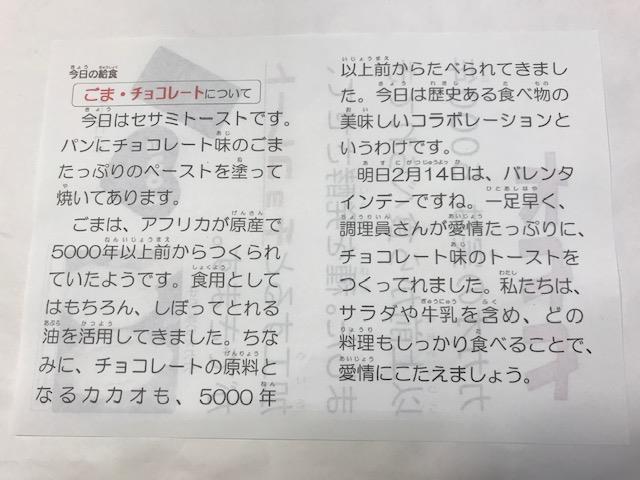 今日の給食
ごま・チョコレートについて
今日はセサミトーストです。
パンにチョコレート味のごま
たっぷりのペーストを塗って
焼いてあります。
ごまは、アフリカが原産で
5000年以上前からつくられ
ていたようです。食用として
はもちろん、しぼってとれる
油を活用してきました。ちな
みに、チョコレートの原料と
なるカカオも、5000年
以上前からたべられてきまし
た。今日は歴史ある食べ物の
美味しいコラボレーションと
いうわけです。
明日2月14日は、バレンタ
インデーですね。一足早く、
調理員さんが愛情たっぷりに、
チョコレート味のトーストを
つくってれました。私たちは、
サラダや牛乳を含め、どの
料理もしっかり食べることで、
愛情にこたえましょう。